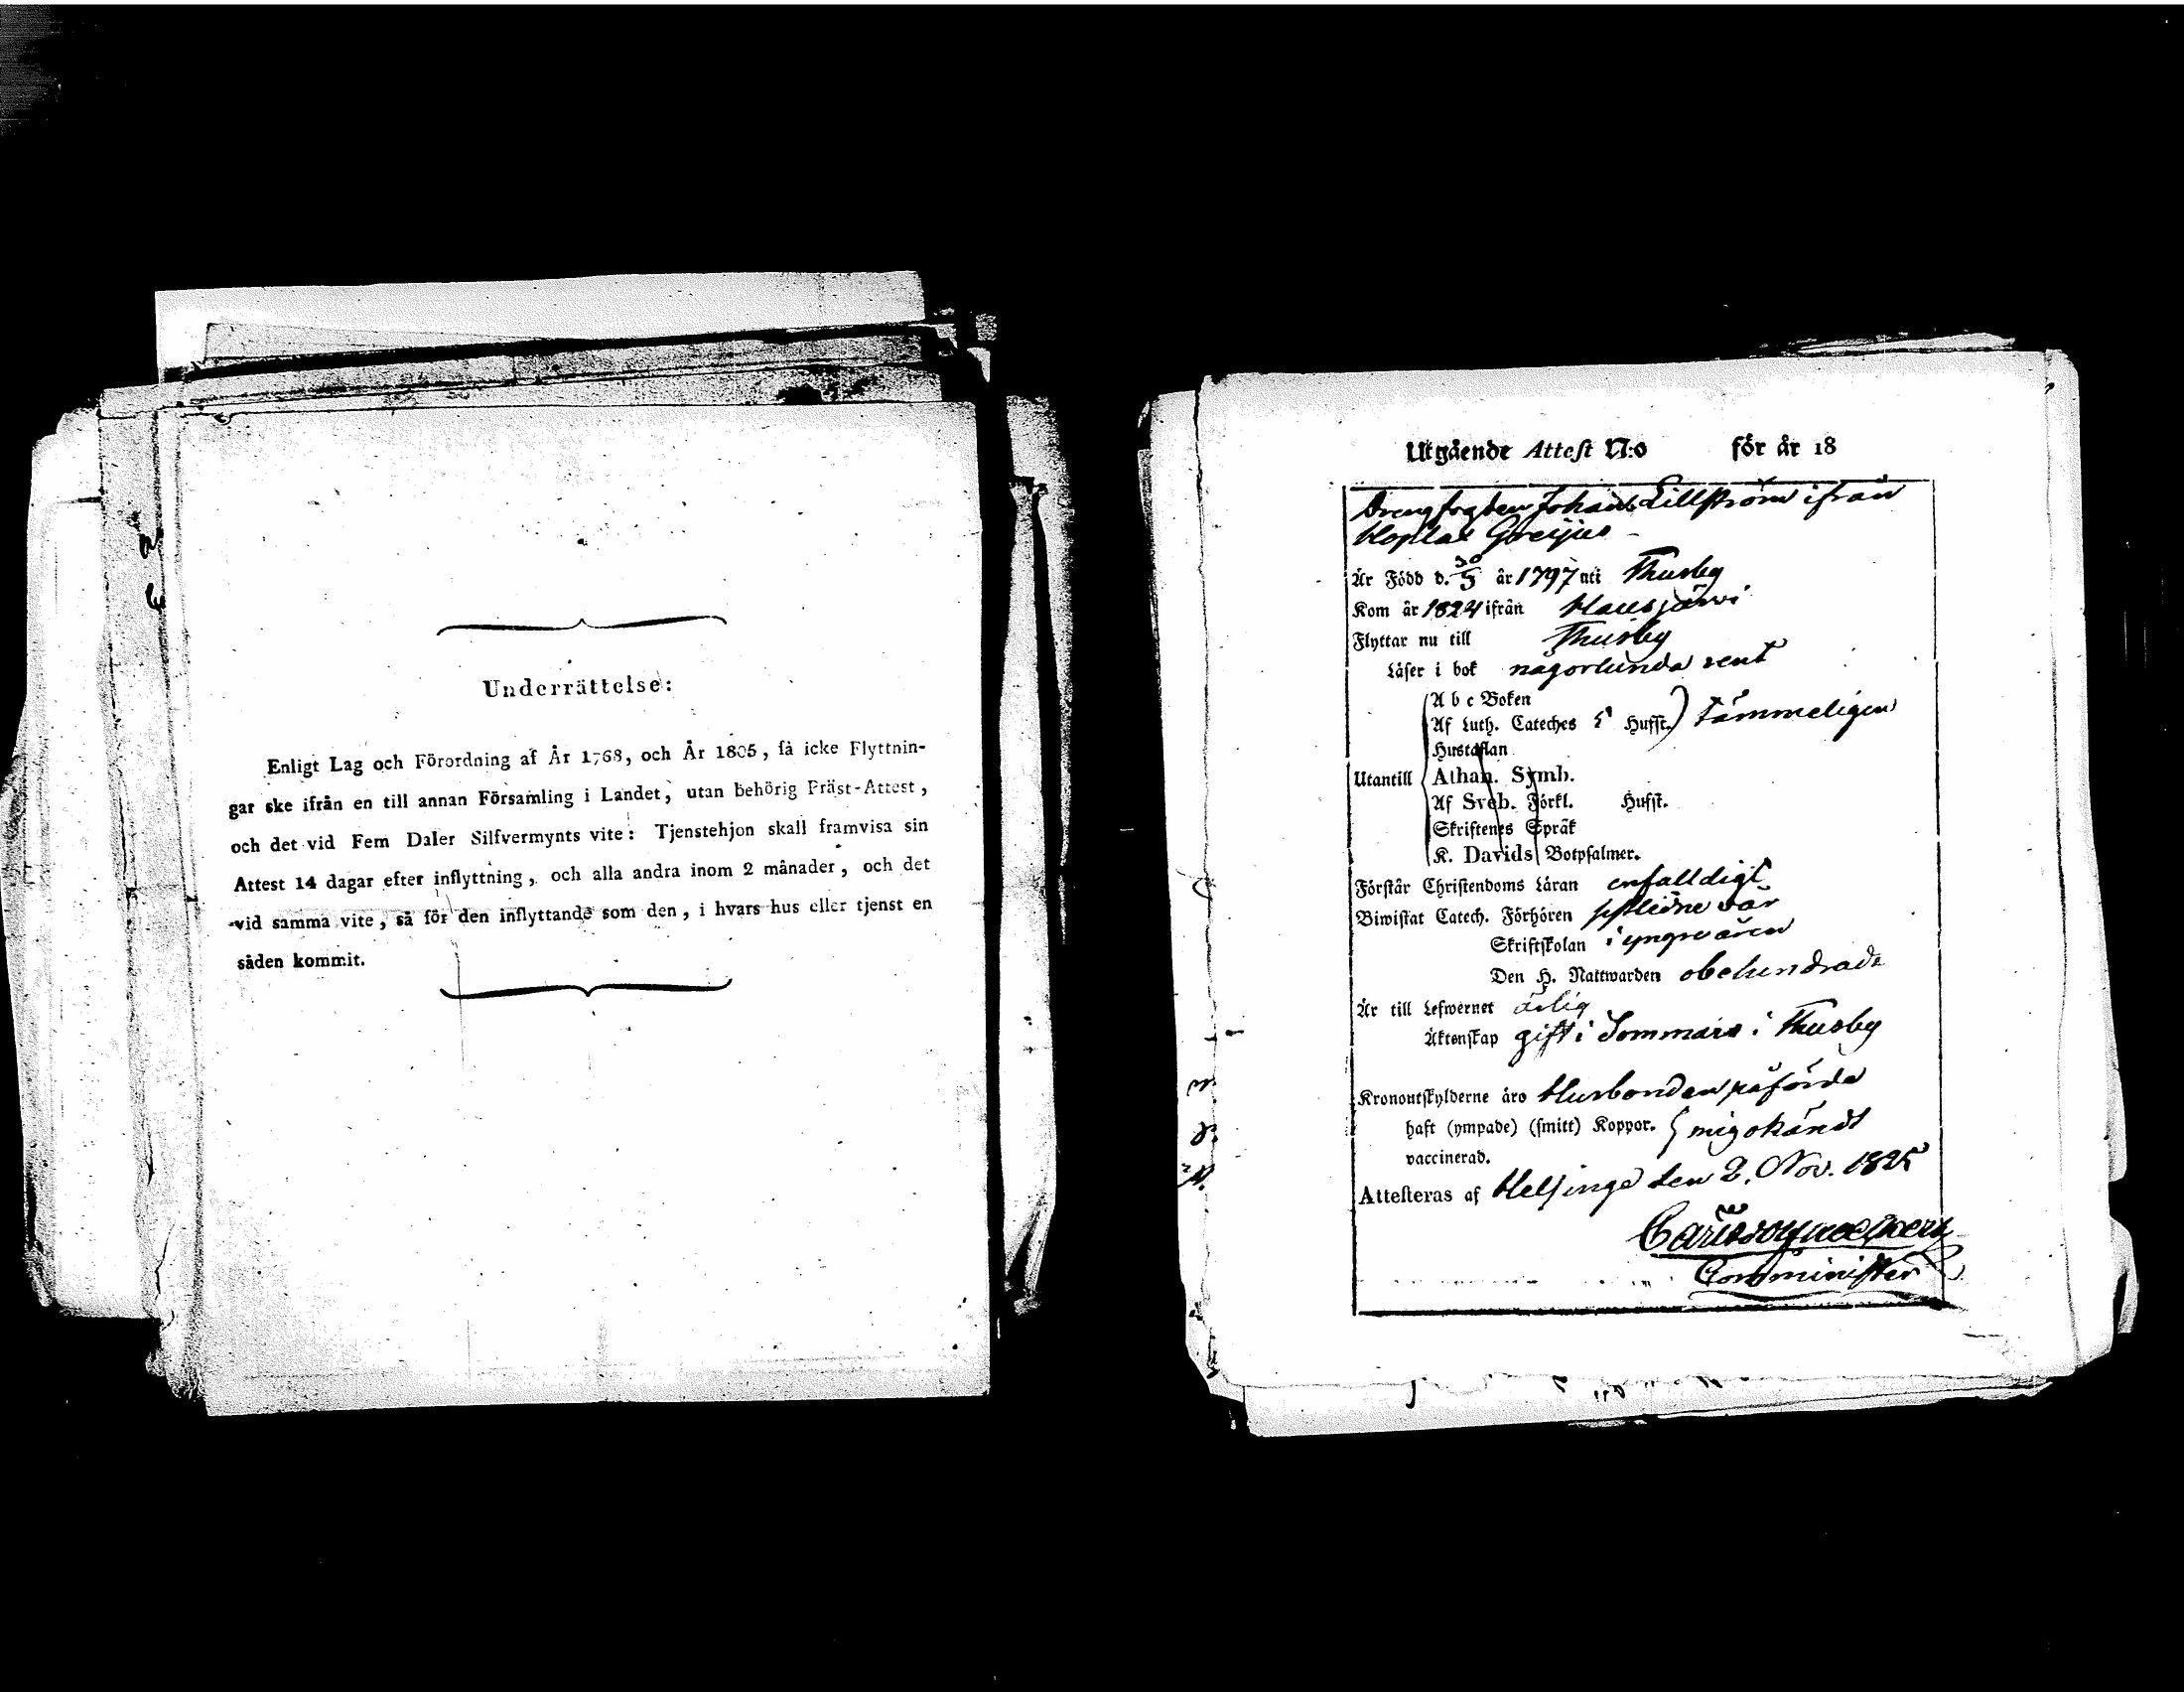 Underrättelse:
Enligt Lag och Förordning af År 1768, och År 1805, få icke Flyttnin-
gar ske ifrån en till annan Församling i Landet, utan behörig Präst-Attest,
och det vid Fem Daler Silfvermynts vite: Tjenstehjon skall framvisa sin
Attest 14 dagar efter inflyttning, och alla andra inom 2 månader, och det
vid samma vite, så för den inflyttande som den, i hvars hus eller tjenst en
såden kommit.
Utgående Attest N:o för år 18
Drengfogden Johan Lillström ifrån
Hoplax
Är Född d. 30/5 år 1797 uti Thusby
Kom år 1824 ifrån Hausjärvi
Flyttar nu till Thusby
Läser i bok någorlunda rent
A b c Boken
Af Luth. Cateches Husst. tämmeligen
Hustaflan
Utantill Athan. Symb.
Af Sveb. Förkl. Husst.
Skriftenes Språk
K. Davids Botpsalmer.
Förstår Christendoms Läran enfalldigt
Biwistat Catech. Förhören sistledne vår
Skriftskolan i yngre åren
Den H. Nattwarden obehindrade
Är till Lefwernet ärlig
Äktenskap gift i Sommars i Thusby
Kronoutskylderne äro Husbonden påförda
haft (ympade) (smitt) Koppor. mig okändt
vaccinerad.
Attesteras af Helsinge den 2. Nov. 1825
Comminister